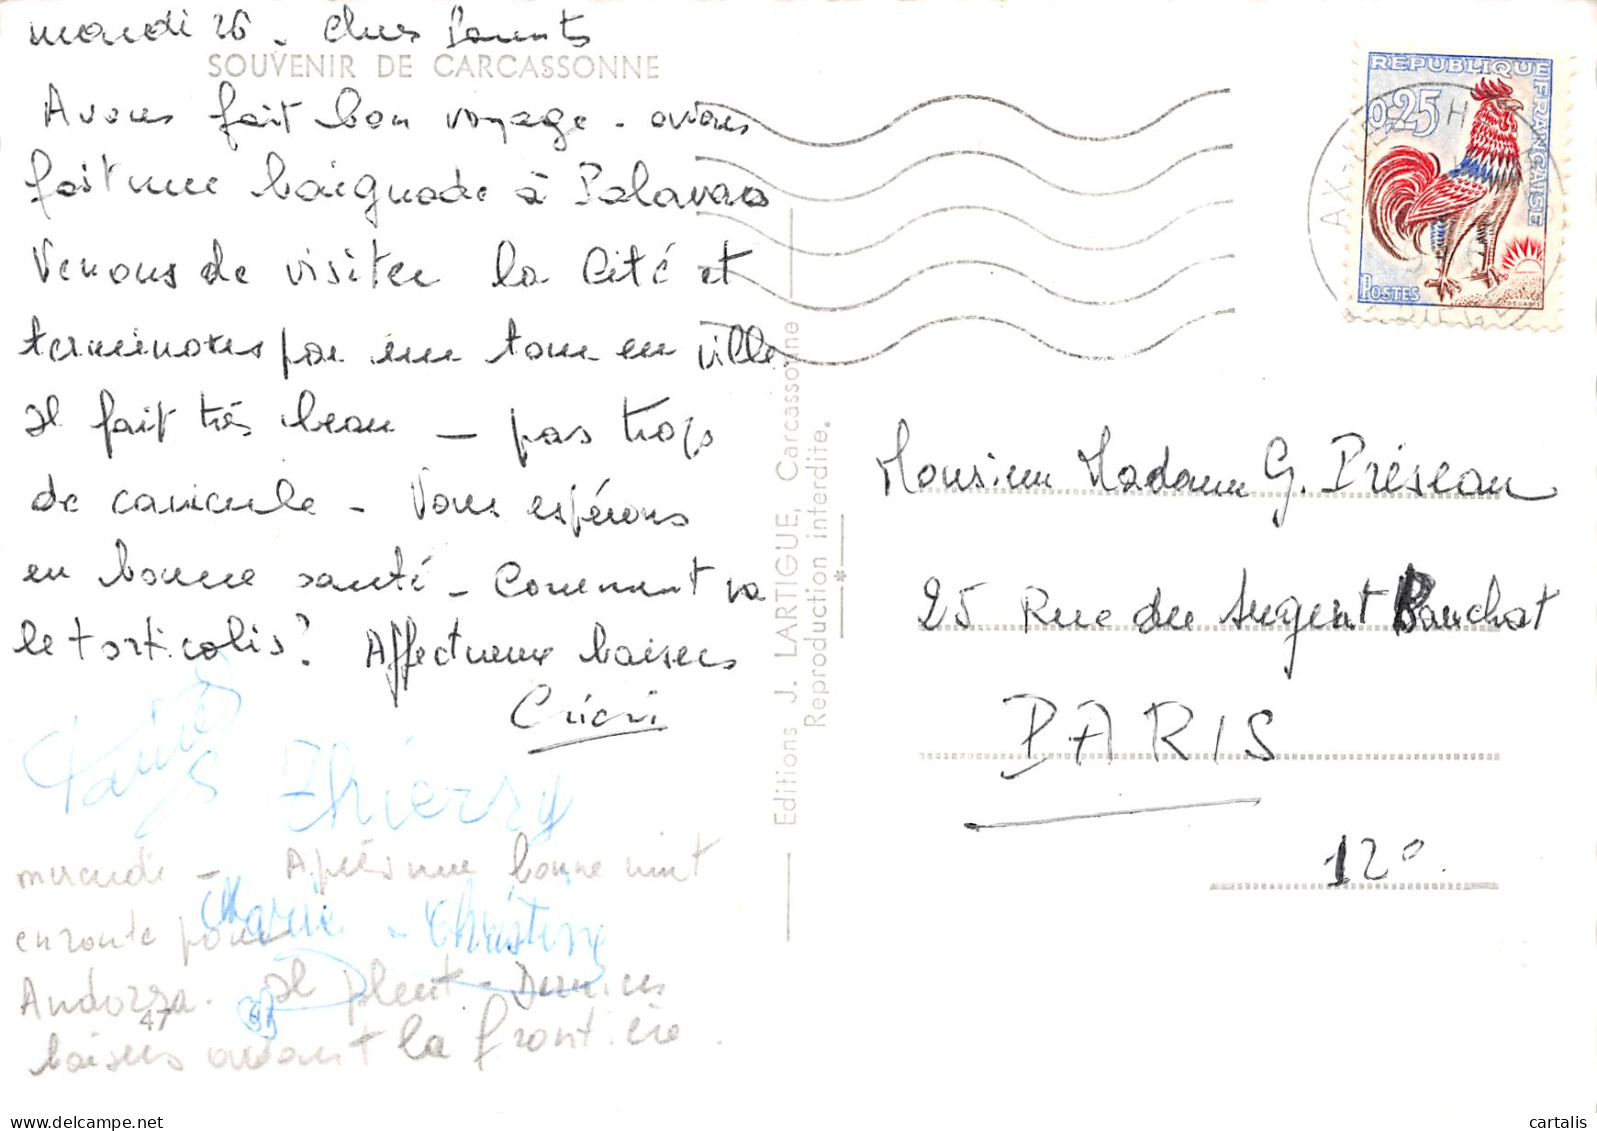 mardi 26 - Chers Parents
SOUVENIR DE CARCASSONNE
Avons fait bon voyage - avons
fait une baignade à Palavas
Venons de visiter la Cité et
terminons par un tour en ville.
Il fait très beau - pas trop
de canicule - Vous espérons
en bonne santé - Comment va
le torticolis? Affectueux baisers
Cricri
Thierry
mercredi - Après une bonne nuit
Marie - Christine
en route pour
Andorra. Il pleut - Derniers
47
baisers avant la frontière.
Editions J. LARTIGUE, Carcassonne
Reproduction interdite.
REPUBLIQUE FRANÇAISE
0,25
POSTES
AX-
Monsieur Madame G. Préseau
25 Rue du Sergent Bauchat
PARIS
12e
cartalis - delcampe.net